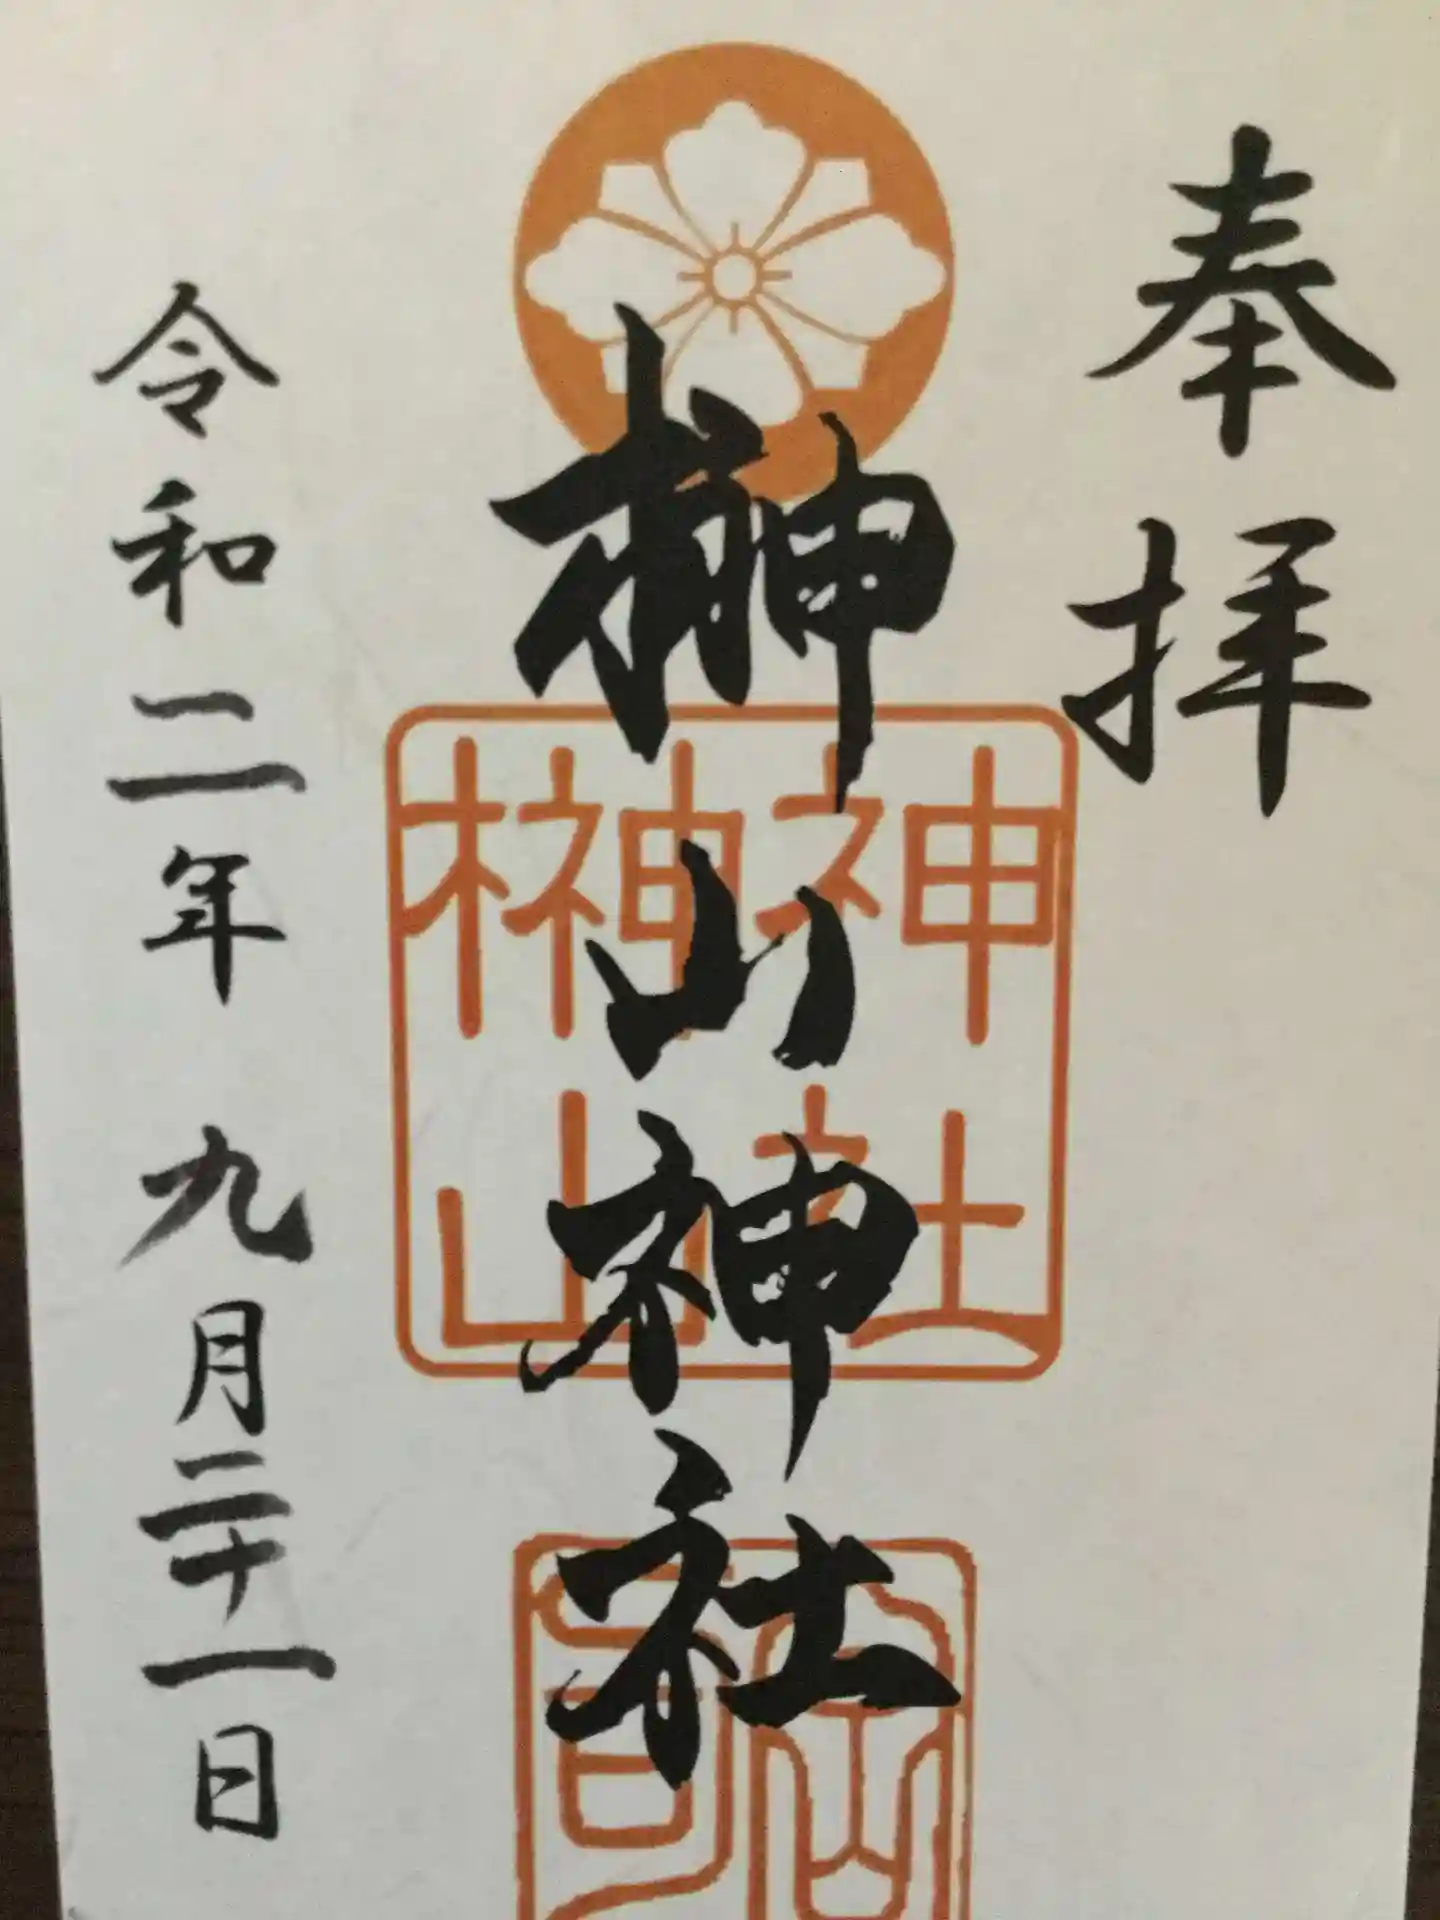 奉拝
榊山神社
榊山
神社
令和二年 九月二十一日